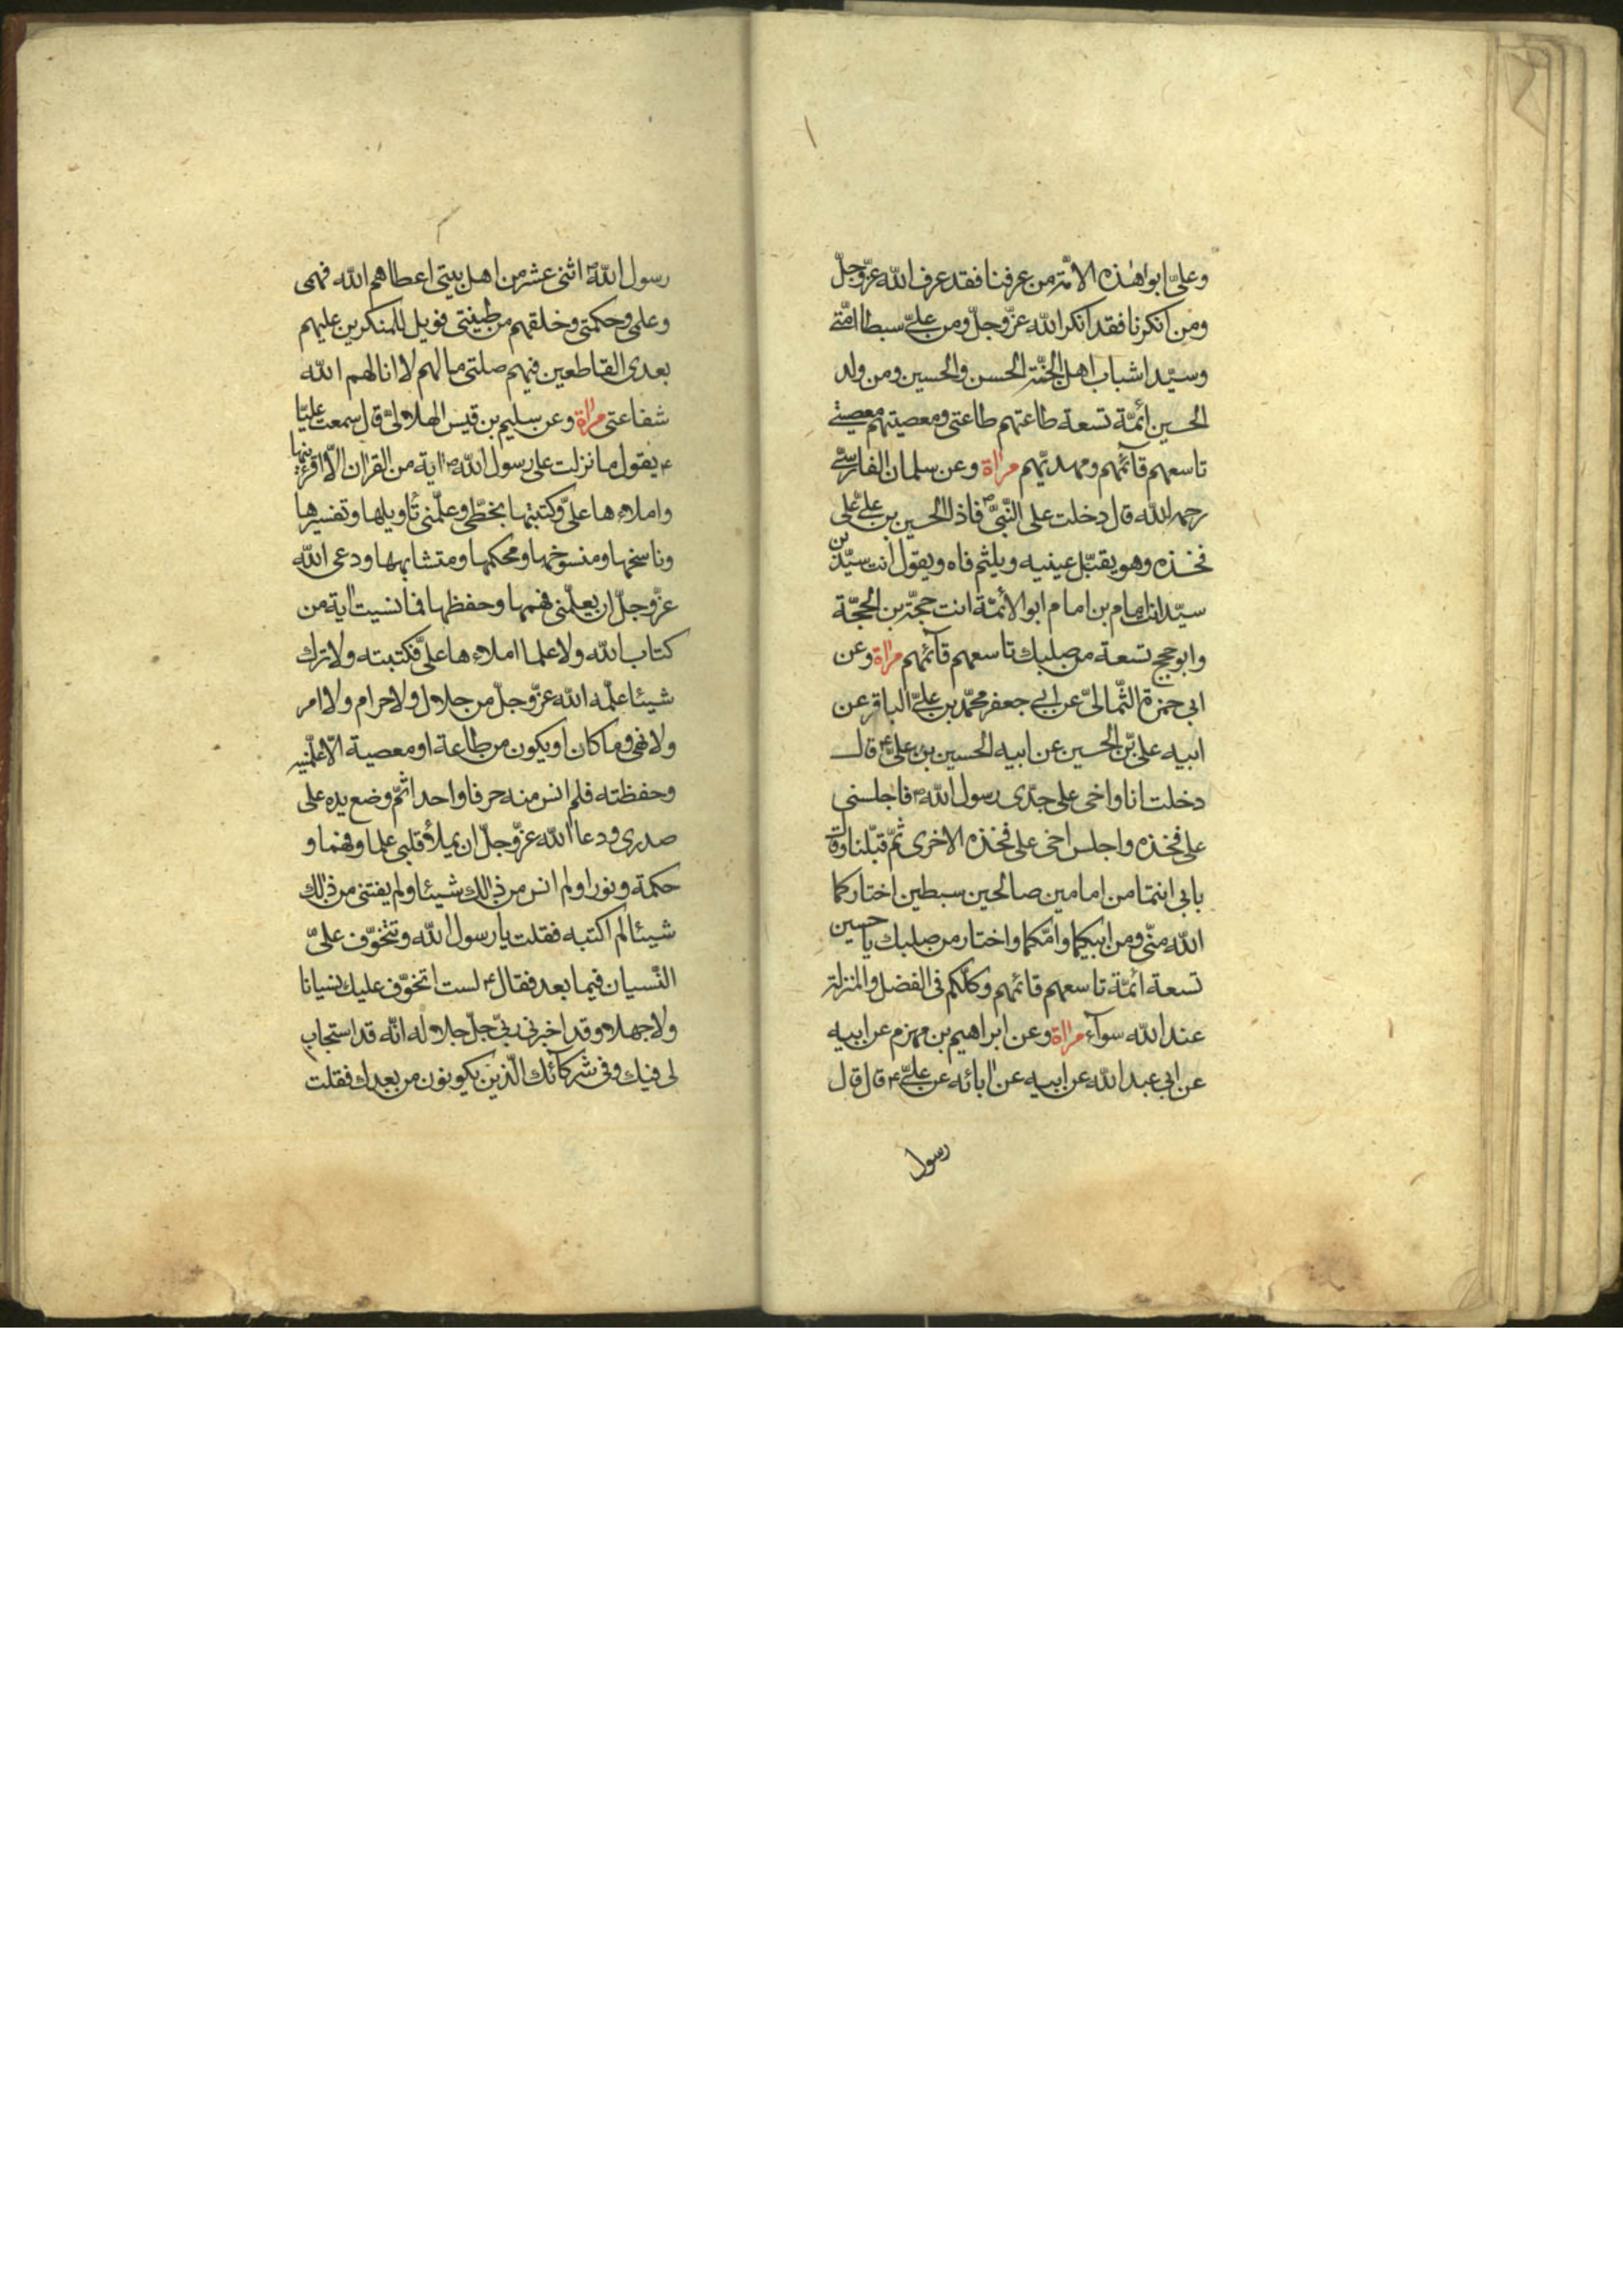 وعليّ ابوا هٰذه الامّة من عرفنا فقد عرف الله عزّ وجلّ
ومن انكرنا فقد انكر الله عزّ وجلّ ومن عليّ سبطا امّتي
وسيّدا شباب اهل الجنّة الحسن والحسين ومن ولد
الحسين ائمّة تسعة طاعتهم طاعتي ومعصيتهم معصيتي
تاسعهم قآئمهم ومهديّهم مراة وعن سلمان الفارسيّ
رحمه الله قال دخلت على النّبيّ ص فاذا الحسين بن عليّ على
فخذه وهو يقبّل عينيه ويلثم فاه ويقول انت سيّد بن
سيّد انت امام بن امام ابو الائمّة انت حجّة بن الحجّة
وابو حجج تسعة من صلبك تاسعهم قآئمهم مراة وعن
ابي حمزة الثّماليّ عن ابي جعفر محمّد بن عليّ الباقر عن
ابيه عليّ بن الحسين عن ابيه الحسين بن عليّ ع قال
دخلت انا واخي على جدّي رسول الله ص فاجلسني
على فخذه واجلس اخي على فخذه الاخرى ثمّ قبّلنا وقال
بابي انتما من امامين صالحين سبطين اختاركما
الله منّي ومن ابيكما وامّكما واختار من صلبك يا حسين
تسعة ائمّة تاسعهم قائمهم وكلّكم في الفضل والمنزلة
عند الله سوآء مراة وعن ابراهيم بن مهزم عن ابيه
عن ابي عبد الله عن ابيه عن ابائه عن عليّ ع قال قال
رسول
رسول الله ص اثنى عشر من اهل بيتي اعطاهم الله فهمي
وعلمي وحكمتي وخلقهم من طينتي فويل للمنكرين عليهم
بعدي القاطعين فيهم صلتي ما لهم لا انا لهم الله
شفاعتي مراة وعن سليم بن قيس الهلاليّ قال سمعت عليّا
ع يقول ما نزلت على رسول الله ص اية من القران الّا اقرءنيها
واملاءها عليّ وكتبتها بخطّي وعلّمني تأويلها وتفسيرها
وناسخها ومنسوخها ومحكمها ومتشابهها ودعى الله
عزّ وجلّ ان يعلّمني فهمها وحفظها فما نسيت اية من
كتاب الله ولا علما املاءها عليّ فكتبته ولا ترك
شيئا علّمه الله عزّ وجلّ من حلال ولا حرام ولا امر
ولا نهي وما كان او يكون من طاعة او معصية الّا علّمنيه
وحفظته فلم انس منه حرفا واحدا ثمّ وضع يده على
صدري ودعا الله عزّ وجلّ ان يملأ قلبي علما وفهما و
حكمة ونورا ولم انس من ذالك شيئا ولم يفتني من ذالك
شيئا لم اكتبه فقلت يا رسول الله وتتخوّف عليّ
النّسيان فيما بعد فقال ع لست اتخوّف عليك نسيانا
ولا جهلا وقد اخبرني ربّي جلّ جلاله انّه قد استجاب
لي فيك وفي شركآئك الّذين يكونون من بعدك فقلت